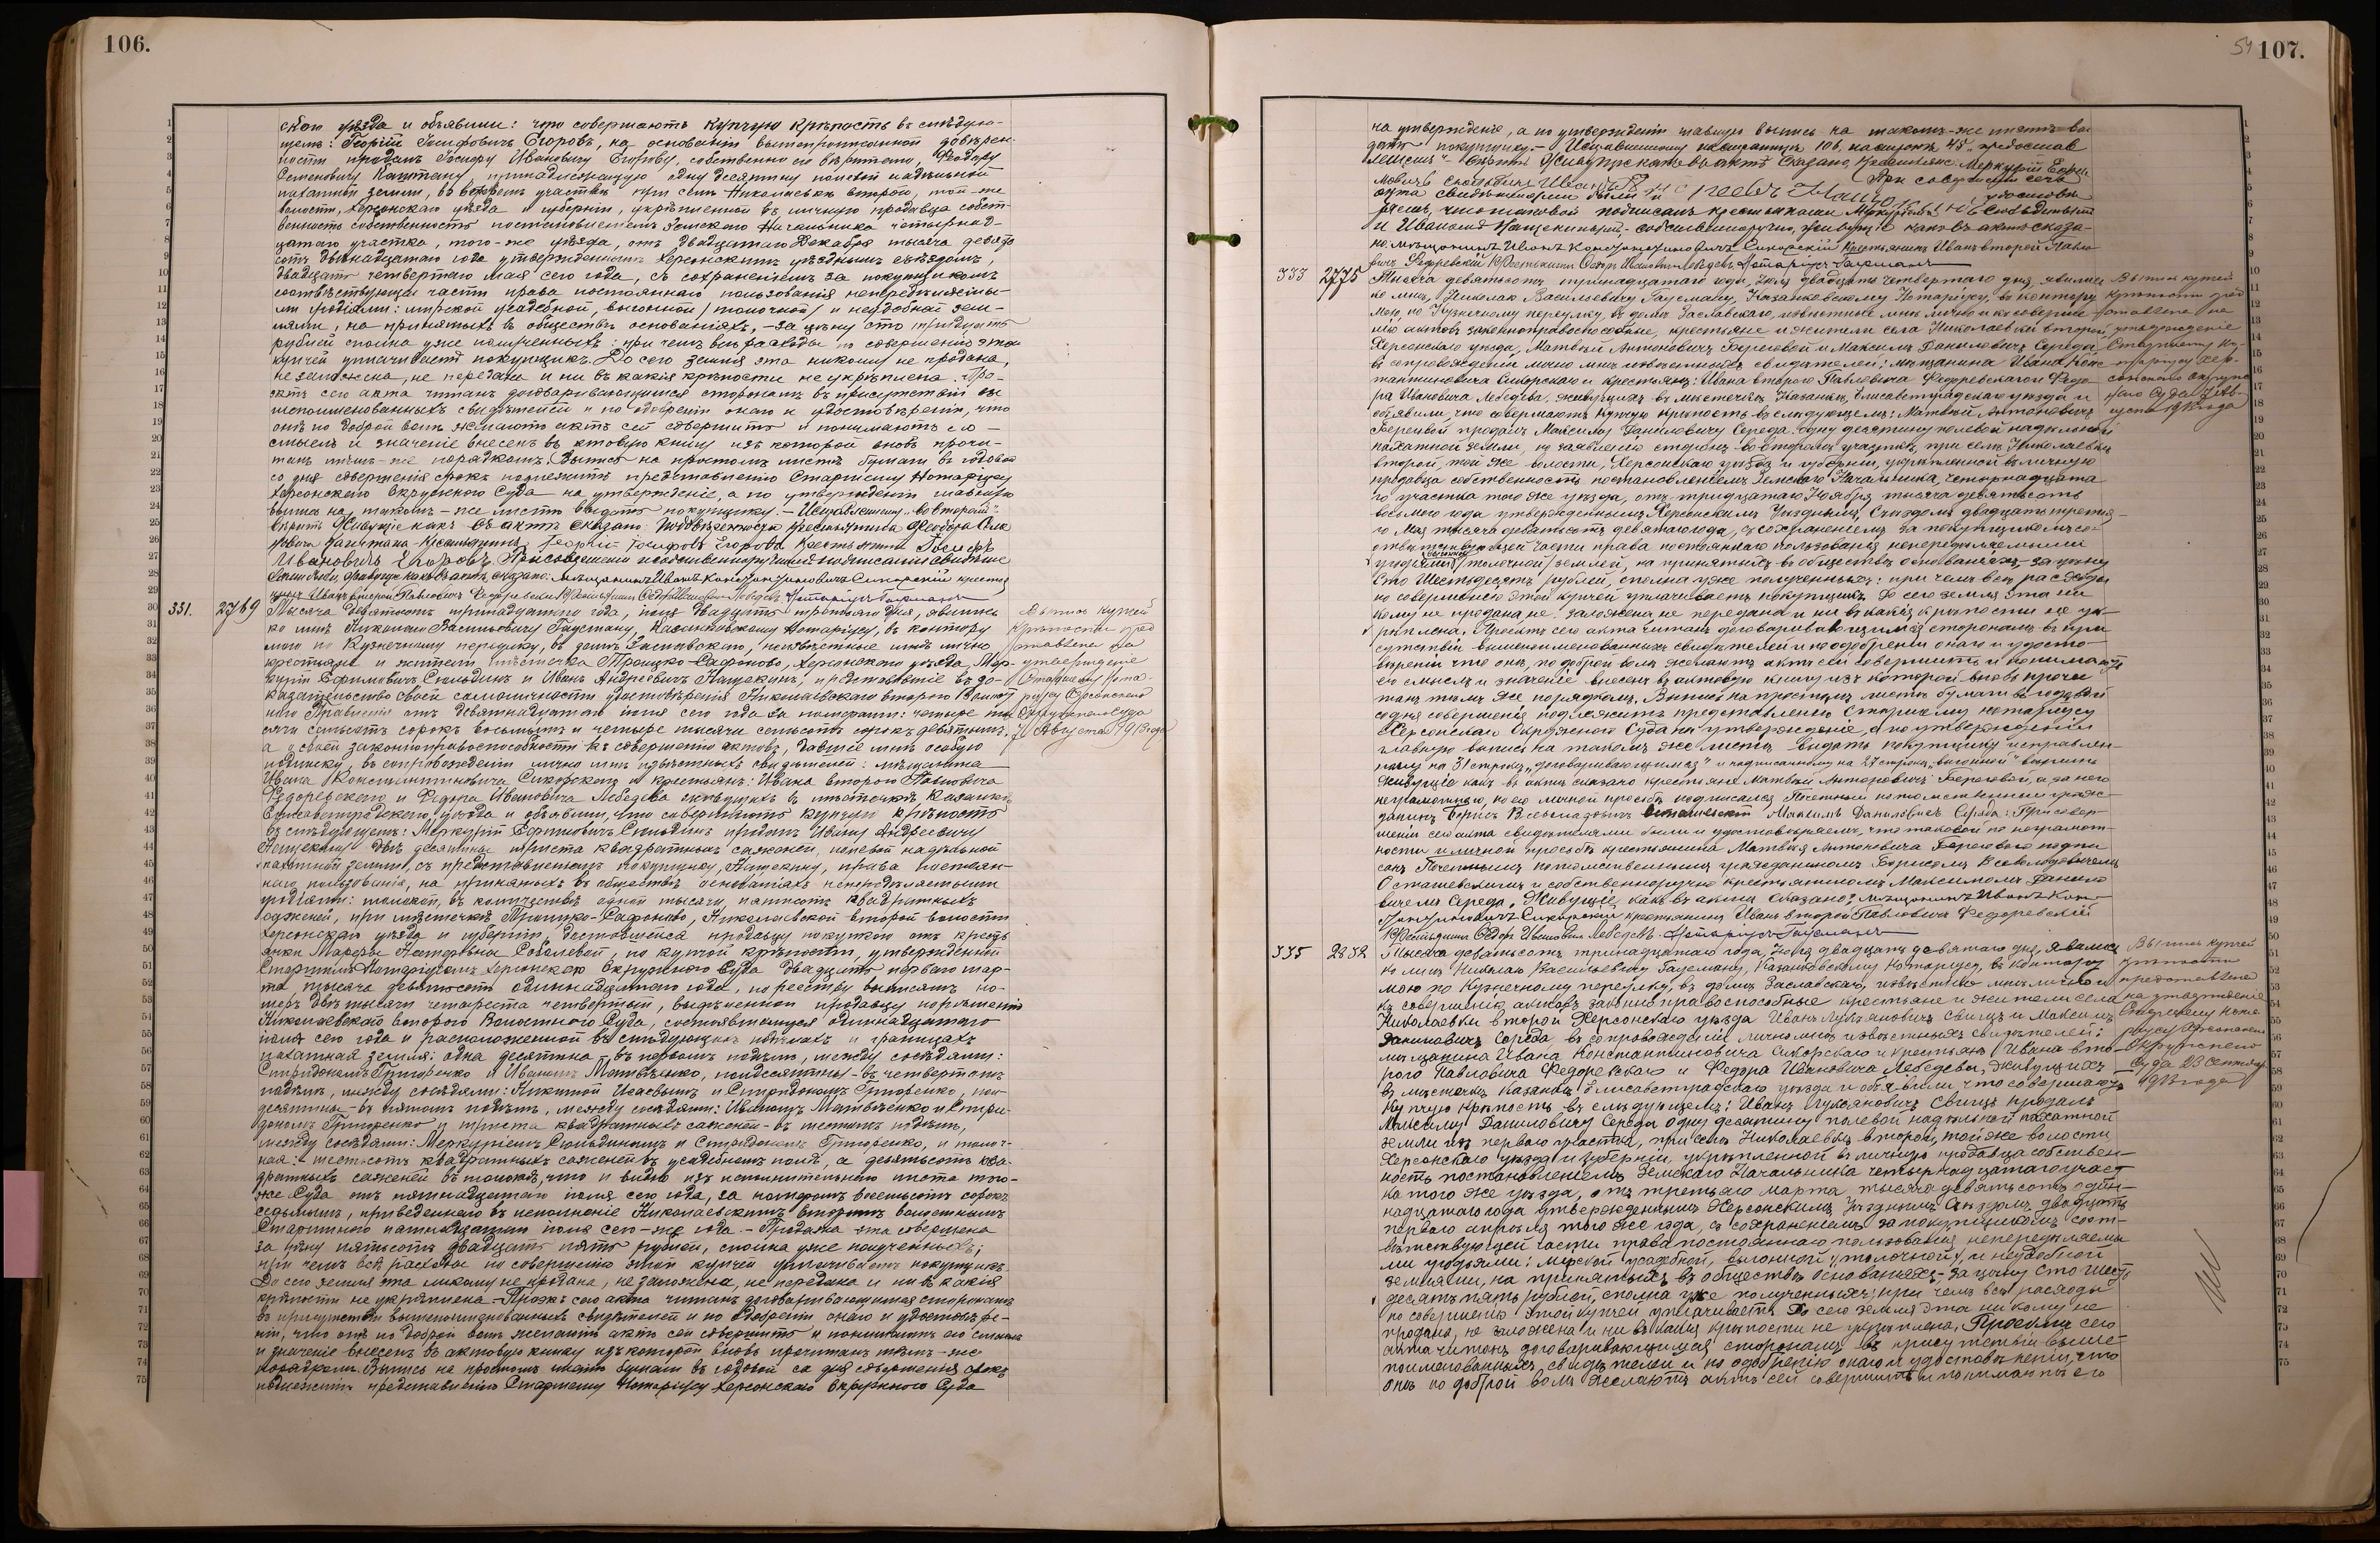 106.
скаго уѣзда и объявили: что совершаютъ купчую крѣпость въ слѣдую-
щемъ: Георгій Іосифовичъ Егоровъ, на основаніи вышепрописанной довѣрен-
ности продалъ Іосифу Ивановичу Егорову, собственно его вѣрителю, Ѳеодору
Семеновичу принадлежащую одну десятину полевой надѣльной
пахатной земли, во второмъ участкѣ при селѣ Николаевкѣ второй, той-же
волости, Херсонскаго уѣзда и губерніи, укрѣпленной въ личную продавца собст-
венность постановленіемъ Земскаго Начальника четырнад-
цатаго участка, того-же уѣзда, отъ двадцатаго Декабря тысяча девять
сотъ двѣнадцатаго года утвержденнымъ Херсонскимъ уѣзднымъ съѣздомъ,
двадцать четвертаго мая сего года, съ сохраненіемъ за покупщикомъ
соотвѣтствующей части права постояннаго пользованія непередѣляемы-
ми угодіями: мирской усадебной, выгонной /толочной/ и неудобной зем-
лями, на принятыхъ въ обществѣ основаніяхъ, - за цѣну сто тридцать
рублей сполна уже полученныхъ: при чемъ всѣ расходы по совершенію этой
купчей уплачиваетъ покупщикъ. До сего земля эта никому не продана,
не заложена, не передана и ни въ какія крѣпости не укрѣплена. Про-
эктъ сего акта читанъ договаривающимся сторонамъ въ присутствіи вы
шепоименованныхъ свидѣтелей и по одобреніи онаго и удостовѣреніи, что
онѣ по доброй волѣ желаютъ актъ сей совершить и понимаютъ его
смыслъ и значеніе внесенъ въ актовую книгу изъ которой вновь прочи-
танъ тѣмъ-же порядкомъ. Выпись на простомъ листѣ бумаги въ годовой
со дня совершенія срокъ подлежитъ представленію Старшему Нотаріусу
Херсонскаго Окружнаго Суда на утвержденіе, а по утвержденіи главную
выпись на такомъ-же листѣ выдать покупщику. - Исправленному „во второмъ"
вѣрить. Живущіе какъ въ актѣ сказано: По довѣренности крестьянина Ѳеодора Сем
еновича крестьянинъ Георгій Іосифовъ Егоровъ крестьянинъ Іосифъ
Ивановичъ Егоровъ. При совершеніи и подписаніи свидѣте
лями были, живущіе какъ въ актѣ сказано: мѣщанинъ Иванъ Константиновичъ Сикорскій крестья
нинъ Иванъ второй Павловичъ Федоревскій Крестьянинъ Федоръ Ивановичъ Лебедевъ Нотаріусъ Гаусманъ
331. 2769 Тысяча девятьсотъ тринадцатаго года, іюля двадцать третьяго дня, явились
ко мнѣ Николаю Васильевичу Гаусману, Казанковскому Нотаріусу, въ контору
мою по Кузнечному переулку, въ домѣ Заславскаго, неизвѣстные мнѣ лично
крестьяне и жители мѣстечка Троицко-Сафоново, Херсонскаго уѣзда, Мер-
курій Ефимовичъ Сюльдинъ и Иванъ Андреевичъ Нащекинъ, представившіе въ до-
казательство своей самоличности удостовѣренія Николаевскаго второго Волост
наго Правленія отъ девятнадцатаго іюля сего года за номерами: четыре ты
сячи семьсотъ сорокъ восьмымъ и четыре тысячи семьсотъ сорокъ девятымъ,
а о своей законоправоспособности къ совершенію актовъ, давшіе мнѣ особую
подписку, въ сопровожденіи лично мнѣ извѣстныхъ свидѣтелей: мѣщанина
Ивана Константиновича Сикорскаго и крестьянъ: Ивана второго Павловича
Федоревскаго и Федора Ивановича Лебедева живущихъ въ мѣстечкѣ Казанкѣ,
Елисаветградскаго уѣзда и объявили, что совершаютъ купчую крѣпость
въ слѣдующемъ: Меркурій Ефимовичъ Сюльдинъ продалъ Ивану Андреевичу
Нащекину двѣ десятины триста квадратныхъ саженей, полевой надѣльной
пахатной земли, съ предоставленіемъ покупщику, Нащекину, права постоян-
наго пользованія, на принятыхъ въ обществѣ основаніяхъ непередѣляемыми
угодіями: толокой, въ количествѣ одной тысячи, пятьсотъ квадратныхъ
саженей, при мѣстечкѣ Троицко-Сафоново, Николаевской второй волости
Херсонскаго уѣзда и губерніи, доставшейся продавцу покупкою отъ кресть
янки Марфы Нестеровны Соболевой, по купчей крѣпости, утвержденной
Старшимъ Нотаріусомъ Херсонскаго Окружнаго Суда двадцать перваго мар-
та, тысяча девятьсотъ одиннадцатаго года, по реестру выписямъ но-
меръ двѣ тысячи четыреста четвертый, выдѣленной продавцу по рѣшенію
Николаевскаго второго Волостного Суда, состоявшемуся одиннадцатаго
іюля сего года и расположенной въ слѣдующихъ подѣлахъ и границахъ
пахатная земля: одна десятина - въ первомъ подѣлѣ, между сосѣдями:
Спиридономъ Григоренко и Иваномъ Матвѣенко, полдесятины - въ четвертомъ
подѣлѣ, между сосѣдями: Никитой Исаевымъ и Спиридономъ Григоренко, пол-
десятины - въ пятомъ подѣлѣ, между сосѣдями: Иваномъ Матвѣенко и Спири-
дономъ Григоренко и триста квадратныхъ саженей - въ шестомъ подѣлѣ,
между сосѣдями: Меркуріемъ Сюльдинымъ и Спиридономъ Григоренко, и толоч-
ная: - шестьсотъ квадратныхъ саженей въ усадебномъ полѣ, а девятьсотъ ква-
дратныхъ саженей въ толокѣ, что и видно изъ исполнительнаго листа того-
же Суда отъ пятнадцатаго іюля сего года, за номеромъ восемьсотъ сорокъ
седьмымъ, приведеннаго въ исполненіе Николаевскимъ вторымъ волостнымъ
Старшиною пятнадцатаго іюля сего-же года. - Продажа эта совершена
за цѣну пятьсотъ двадцать пять рублей, сполна уже полученныхъ;
при чемъ всѣ расходы по совершенію этой купчей уплачиваетъ покупщикъ.
До сего земля эта никому не продана, не заложена, не передана и ни въ какія
крѣпости не укрѣплена. - Проэктъ сего акта читанъ договаривающимся сторонамъ
въ присутствіи вышепоименованныхъ свидѣтелей и по одобреніи онаго и удостовѣре-
ніи, что онѣ по доброй волѣ желаютъ актъ сей совершить и понимаютъ его смыслъ
и значеніе внесенъ въ актовую книгу изъ которой вновь прочитанъ тѣмъ-же
порядкомъ. Выпись на простомъ листѣ бумаги въ годовой со дня совершенія срокъ
подлежитъ представленію Старшему Нотаріусу Херсонскаго Окружного Суда
Выпись купчей
крѣпости пред
ставлена на
утвержденіе
Старшему Нота-
ріусу Херсонскаго
Окружнаго Суда
Августа 1913 года
54 107.
на утвержденіе, а по утвержденіи главную выпись на такомъ-же листѣ вы
дать покупщику. - Исправленному на страницѣ 106, на строкѣ 45 „предостав
леніемъ" вѣрить. Живущіе какъ въ актѣ сказано, Крестьяне: Меркурій Ефи
мовичъ Сюльдинъ Иванъ Нащекинъ При совершеніи сего
акта свидѣтелями были и удостовѣ
ряемъ, что таковой подписанъ крестьянами Меркуріемъ Сюльдинымъ
и Иваномъ Нащекинымъ, - собственноручно, живущіе какъ въ актѣ сказа-
но: мѣщанинъ Иванъ Константиновичъ Сикорскій Крестьянинъ Иванъ второй Павло
вичъ Федоревскій Крестьянинъ Федоръ Ивановичъ Лебедевъ. Нотаріусъ Гаусманъ
333 2775 Тысяча девятьсотъ тринадцатаго года, Іюля двадцать четвертаго дня, явились
ко мнѣ, Николаю Васильевичу Гаусману, Казанковскому Нотаріусу, въ контору
мою, по Кузнечному переулку, въ домѣ Заславскаго, извѣстные мнѣ лично и къ соверше
нію актовъ законоправоспособные, крестьяне и жители села Николаевки второй
Херсонскаго уѣзда, Матвѣй Антоновичъ Береговой и Максимъ Даниловичъ Середа
въ сопровожденіи лично мнѣ извѣстныхъ свидѣтелей; мѣщанина Ивана Конс
тантиновича Сикорскаго и крестьянъ: Ивана второго Павловича Федоревскаго и Федо
ра Ивановича Лебедева, живущихъ въ мѣстечкѣ Казанкѣ, Елисаветградскаго уѣзда и
объявили, что совершаютъ купчую крѣпость въ слѣдующемъ: Матвѣй Антоновичъ
Береговой продалъ Максиму Даниловичу Середа одну десятину полевой надѣльной
пахатной земли, по заявленію сторонъ во второмъ участкѣ, при селѣ Николаевкѣ
второй, той же волости, Херсонскаго уѣзда и губерніи, укрѣпленной въ личную
продавца собственность постановленіемъ Земскаго Начальника, четырнадцата
го участка того же уѣзда, отъ тридцатаго Ноября тысяча девятьсотъ
восьмого года утвержденнымъ Херсонскимъ Уѣзднымъ Съѣздомъ двадцать третья-
го Мая тысяча девятьсотъ девятаго года, съ сохраненіемъ за покупщикомъ со-
отвѣтствующей части права постояннаго пользованія непередѣляемыми
угодіями выгонной /толочной/ землей, на принятыхъ въ обществѣ основаніяхъ, - за цѣну
Сто Шестьдесятъ рублей, сполна уже полученныхъ: при чемъ всѣ расходы
по совершенію этой купчей уплачиваетъ покупщикъ. До сего земля эта ни
кому не продана, не заложена не передана и ни въ какія крѣпости не ук-
рѣплена. Проэктъ сего акта читанъ договаривающимся сторонамъ въ при
сутствіи вышепоименованныхъ свидѣтелей и по одобреніи онаго и удосто-
вѣреніи что онѣ, по доброй волѣ желаютъ актъ сей совершить и понимаютъ
его смыслъ и значеніе внесенъ въ актовую книгу изъ которой вновь прочи
танъ тѣмъ же порядкомъ, Выпись на простомъ листѣ бумаги въ годовой
со дня совершенія подлежитъ представленію Старшему нотаріусу
Херсонскаго Окружнаго Суда на утвержденіе, а по утвержденіи
главную выпись на такомъ же листѣ выдать покупщику исправлен-
ному на 31 строкѣ „договаривающимся" и надписанному на 27 строкѣ „выгонной" вѣрить
Живущіе какъ въ актѣ сказано крестьяне Матвѣй Антоновичъ Береговой, а за него
неграмотнаго, по его личной просьбѣ подписался Почетный потомственный граж-
данинъ Борисъ Всеволодовичъ Осташевскій Максимъ Даниловичъ Середа: При совер-
шеніи сего акта свидѣтелями были и удостовѣряемъ, что таковой по неграмот-
ности и личной просьбѣ крестьянина Матвѣя Антоновича Берегового подпи
санъ Почетнымъ потомственнымъ гражданиномъ Борисомъ Всеволодовичемъ
Осташевскимъ и собственноручно крестьяниномъ Максимомъ Данило
вичемъ Середа. Живущіе какъ въ актѣ сказано: мѣщанинъ Иванъ Конс
тантиновичъ Сикорскій крестьянинъ Иванъ второй Павловичъ Федоревскій
Крестьянинъ Федоръ Ивановичъ Лебедевъ. Нотаріусъ Гаусманъ
Выпись купчей
крѣпости пред
ставлена на
утвержденіе
Старшему Но-
таріусу Хер-
сонскаго Окруж
наго Суда
1913 года
335 2832 Тысяча девятьсотъ тринадцатаго года, Іюля двадцать девятаго дня, явились
ко мнѣ Николаю Васильевичу Гаусману, Казанковскому Нотаріусу, въ контору
мою по Кузнечному переулку, въ домѣ Заславскаго, извѣстные мнѣ лично и
къ совершенію актовъ законоправоспособные крестьяне и жители села
Николаевки второй Херсонскаго уѣзда Иванъ Лукьяновичъ Свищъ и Максимъ
Даниловичъ Середа въ сопровожденіи лично мнѣ извѣстныхъ свидѣтелей:
мѣщанина Ивана Константиновича Сикорскаго и крестьянъ Ивана вто-
рого Павловича Федоревскаго и Федора Ивановича Лебедева, живущихъ
въ мѣстечкѣ Казанкѣ Елисаветградскаго уѣзда и объявили что совершаютъ
купчую крѣпость въ слѣдующемъ: Иванъ Лукьяновичъ Свищъ продалъ
Максиму Даниловичу Середа одну десятину полевой надѣльной пахатной
земли изъ перваго участка, при селѣ Николаевкѣ второй, той же волости
Херсонскаго уѣзда и губерніи, укрѣпленной въ личную продавца собствен-
ность постановленіемъ Земскаго Начальника четырнадцатаго участ
ка того же уѣзда, отъ третьяго марта тысяча девятьсотъ один-
надцатаго года утвержденнымъ Херсонскимъ Уѣзднымъ Съѣздомъ двадцать
перваго апрѣля того же года, съ сохраненіемъ за покупщикомъ соот-
вѣтствующей части права постояннаго пользованія непередѣляемы
ми угодьями: мірской усадебной, выгонной /толочной/, и неудобной
землями, на принятыхъ въ обществѣ основаніяхъ, - за цѣну Сто шесть
десятъ пять рублей, сполна уже полученныхъ; при чемъ всѣ расходы
по совершенію этой купчей уплачиваетъ До сего земля эта никому не
продана, не заложена и ни въ какія крѣпости не укрѣплена, Проектъ сего
акта читанъ договаривающимся сторонамъ въ присутствіи выше-
поименованныхъ свидѣтелей и по одобренію онаго и удостовѣреніи, что
онѣ по доброй волѣ желаютъ актъ сей совершить и понимаютъ его
Выпись купчей
крѣпости
представлена
на утвержденіе
Старшему Нота
ріусу Херсонскаго
Окружнаго
Суда 23 Сентября
1913 года